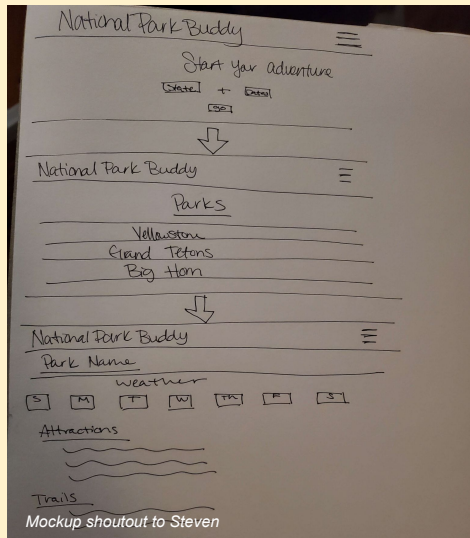 National Park Buddy
Start your adventure
State +
Go
National Park Buddy
Parks
Yellowstone
Grand Tetons
Big Horn
National Park Buddy
Park Name
Weather
S M T W TH F S
Attractions
Trails
Mockup shoutout to Steven